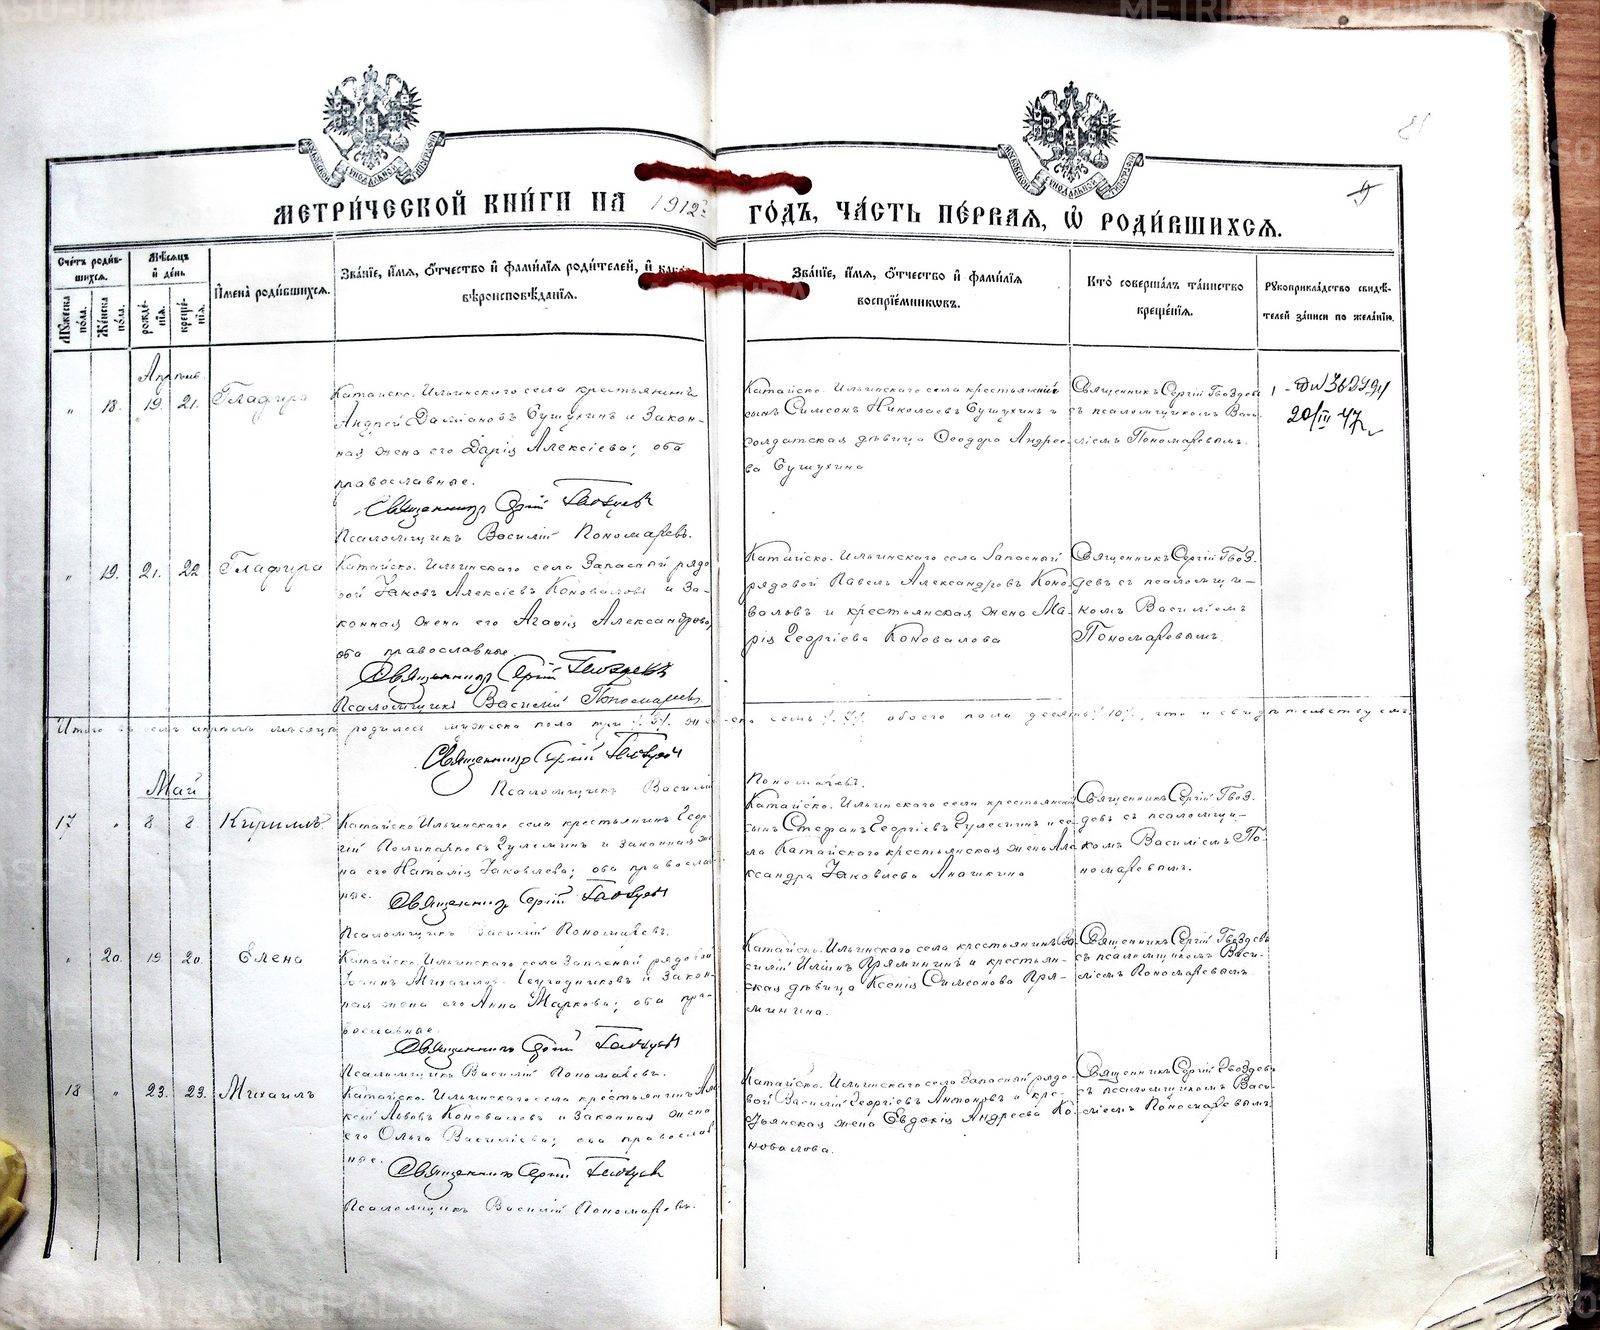 МЕТРИ́ЧЕСКОЙ КНИ́ГИ НА 1912 ГО́ДЪ, ЧА́СТЬ ПЕ́РВАЯ, Ѡ РОДИ́ВШИХСЯ.
Сче́тъ роди́в-
шихся.
Му́жеска по́ла.
Же́нска по́ла.
Мѣ́сяцъ и де́нь
рожде́нія.
креще́нія.
И҆мена̀ роди́вшихся.
Зва́ніе, и҆́мя, ѻ҆́тчество и҆ фами́лія роди́телей, и҆ како́
вѣроисповѣ́данія.
Зва́ніе, и҆́мя, ѻ҆́тчество и҆ фами́лія
воспрїе́мниковъ.
Кто̀ соверша́лъ та́инство
креще́нія.
Рꙋкоприкла́дство свидѣ́-
телей за́писи по жела́нію.
Апрѣль
" 18. 19. 21. Глафира
Катайско-Ильинскаго села крестьянинъ
Андрей Даміановъ Сушухинъ и закон-
ная жена его Дарія Алексіева; оба
православные.
Священникъ Сергій Гвоздевъ
Псаломщикъ Василій Пономаревъ.
Катайско-Ильинскаго села крестьянскій
сынъ Симеонъ Николаевъ Сушухинъ и
солдатская дѣвица Ѳеодора Андрее-
ва Сушухина
Священникъ Сергій Гвоздевъ
съ псаломщикомъ Васи-
ліемъ Пономаревымъ.
20/III 47
" 19. 21. 22 Глафира
Катайско-Ильинскаго села запасный рядо
вой Іаковъ Алексіевъ Коноваловъ и за-
конная жена его Агафія Александрова,
оба православные.
Священникъ Сергій Гвоздевъ
Псаломщикъ Василій Пономаревъ
Катайско-Ильинскаго села запасный
рядовой Павелъ Александровъ Коно-
валовъ и крестьянская жена Ма-
рія Георгіева Коновалова
Священникъ Сергій Гвоз-
девъ съ псаломщи-
комъ Василіемъ
Пономаревымъ.
Итого въ семъ апрѣлѣ мѣсяцѣ родилось мужеска пола три /3/, женска семь /7/, обоего пола десять /10/, что и свидѣтельствуемъ
Священникъ Сергій Гвоздевъ
Псаломщикъ Василій Пономаревъ.
Май
17 " 8 8 Кириллъ
Катайско-Ильинскаго села крестьянинъ Геор-
гій Поликарповъ и законная же
на его Наталія Іаковлева; оба православ
ные.
Священникъ Сергій Гвоздевъ
Псаломщикъ Василій Пономаревъ.
Катайско-Ильинскаго села крестьянскій
сынъ Стефанъ Георгіевъ и се-
ла Катайскаго крестьянская жена Але
ксандра Іаковлева Анашкина
Священникъ Сергій Гвоз-
девъ съ псаломщи-
комъ Василіемъ По-
номаревымъ.
" 20. 19 20. Елена
Катайско-Ильинскаго села запасный рядовой
Іоаннъ Михаиловъ и закон-
ная жена его Анна Маркова; оба пра-
вославные.
Священникъ Сергій Гвоздевъ
Псаломщикъ Василій Пономаревъ.
Катайско-Ильинскаго села крестьянинъ Ва
силій Илiинъ Прямининъ и крестьян-
ская дѣвица Ксенія Симеонова Пря-
минина.
Священникъ Сергій Гвоздевъ
съ псаломщикомъ Васи-
ліемъ Пономаревымъ.
18 " 23. 23. Михаилъ
Катайско-Ильинскаго села крестьянинъ Але
ксій Львовъ Коноваловъ и законная жена
его Ольга Василіева; оба православ
ные.
Священникъ Сергій Гвоздевъ
Псаломщикъ Василій Пономаревъ.
Катайско-Ильинскаго села запасный рядо-
вой Василій Георгіевъ Антоновъ и кре-
стьянская жена Евдокія Андреева Ко-
новалова.
Священникъ Сергій Гвоздевъ
съ псаломщикомъ Васи-
ліемъ Пономаревымъ.